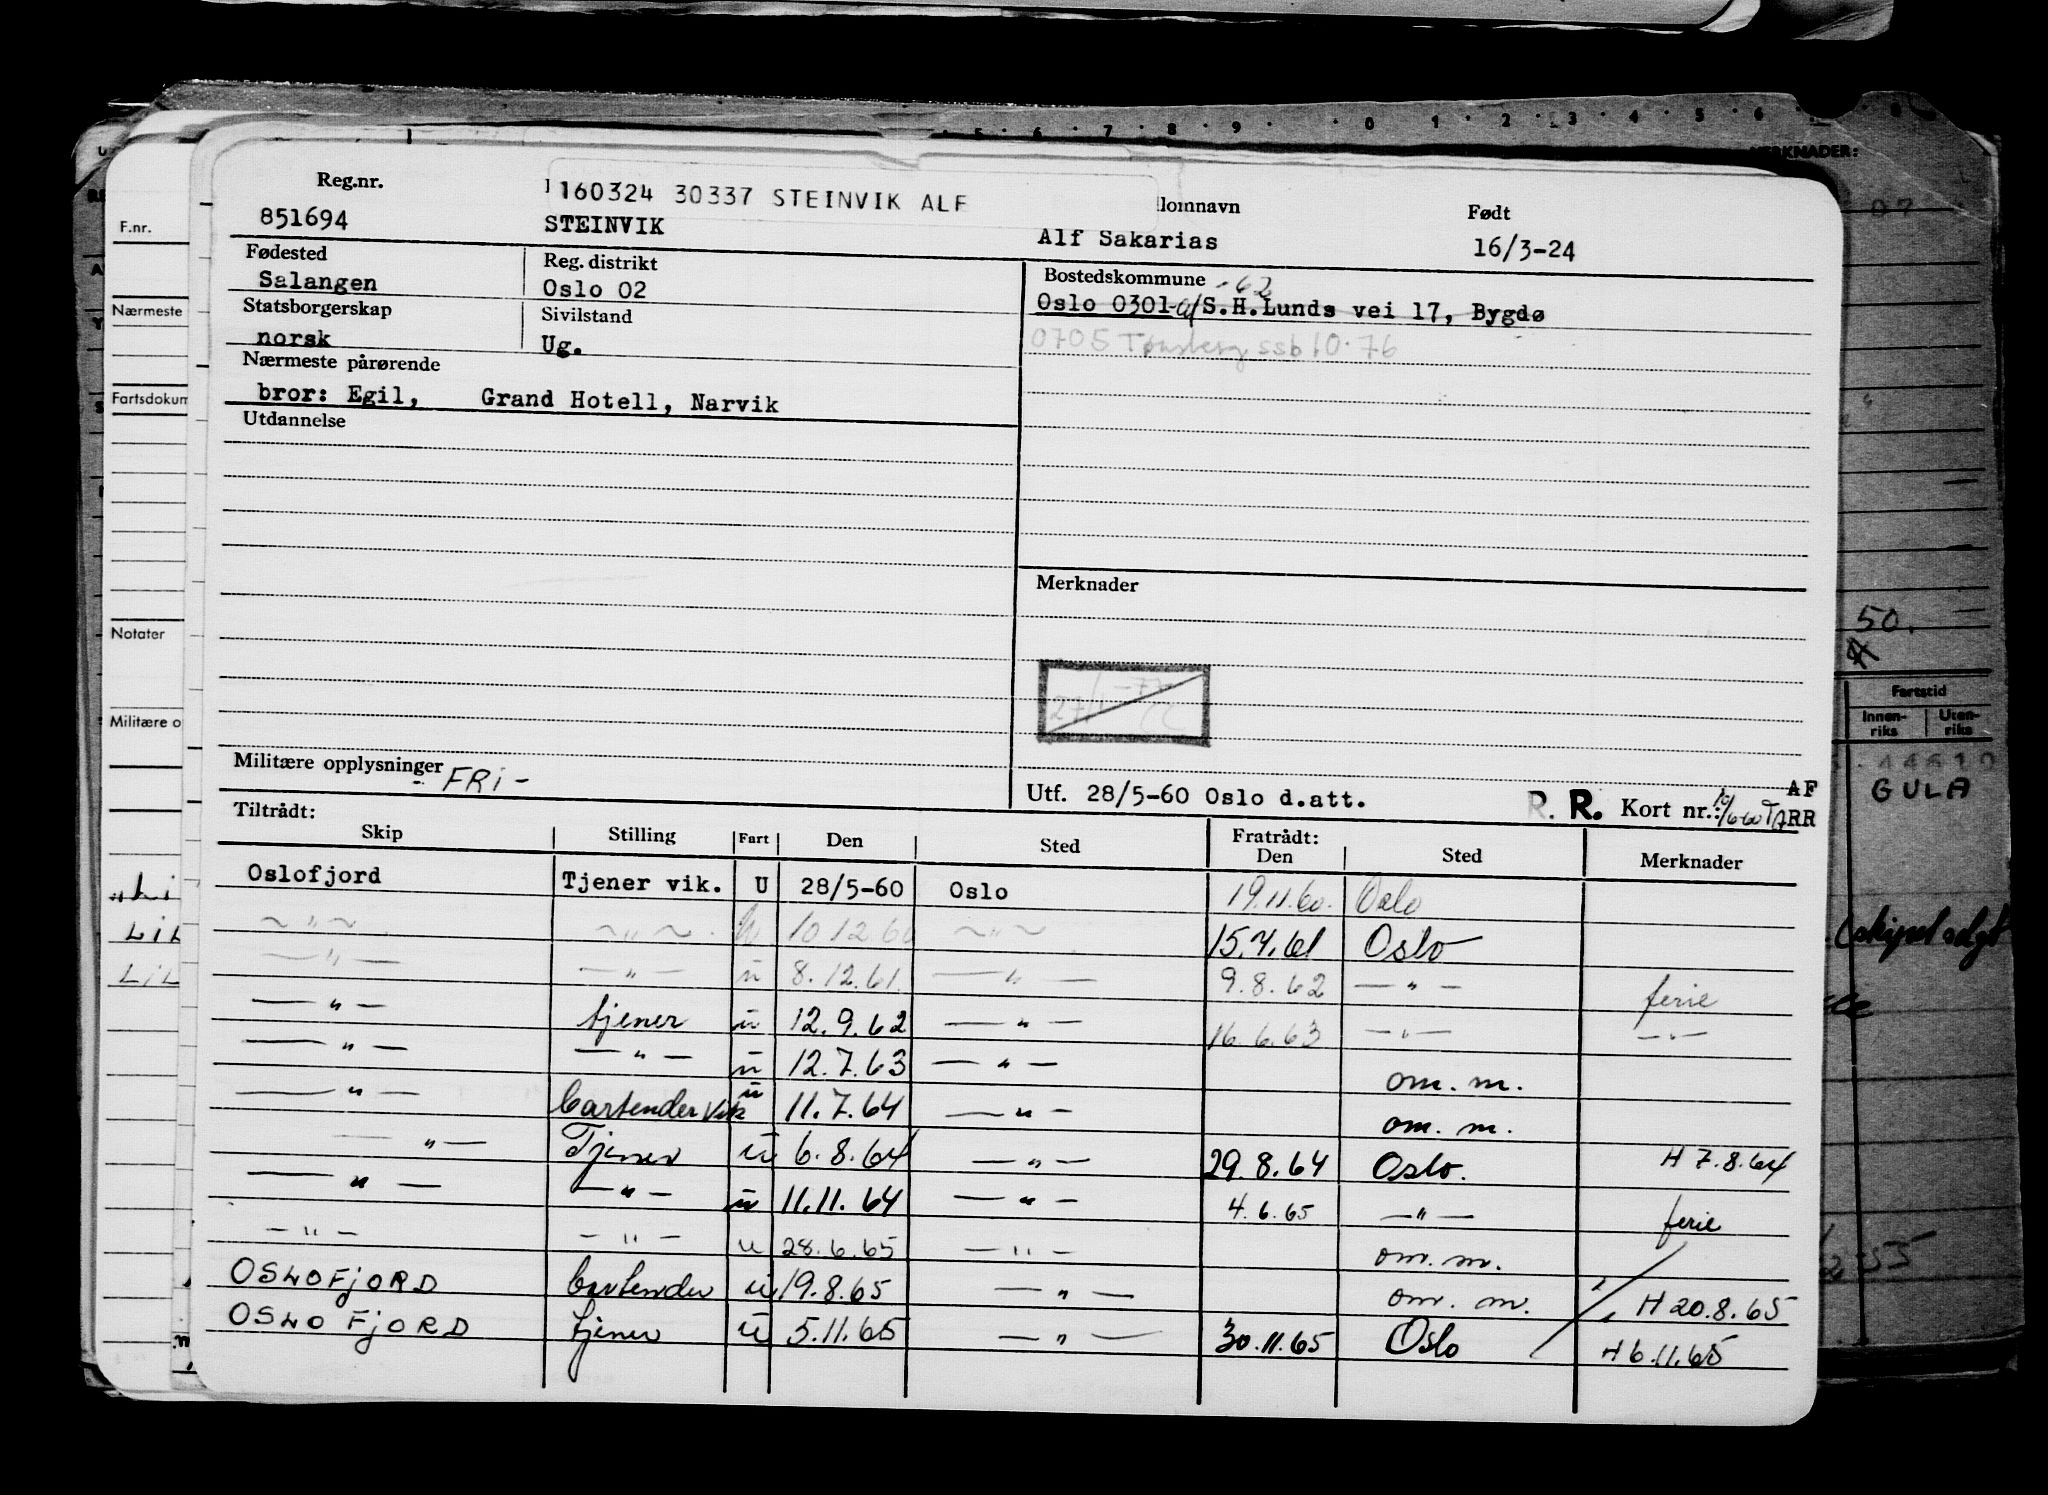 5 6 7 8 9 0 1 2 3 4 5 6 8
MERKNADER:
Reg.nr. 160324 30337 STEINVIK ALF lomnavn Født
851694 STEINVIK Alf Sakarias 16/3-24
Fødested Reg. distrikt Bostedskommune -62
Salangen Oslo 02 Oslo 0301 S.H.Lunds vei 17, Bygdø
Statsborgerskap Sivilstand
norsk Ug. 0705 Tønsberg ssb 10.76
Nærmeste pårørende
bror: Egil, Grand Hotell, Narvik
Utdannelse
Merknader
Militære opplysninger - FRI -
Utf. 28/5-60 Oslo d.att. R. R. Kort nr.: AF
RR
Tiltrådt: Fratrådt:
Skip Stilling Fart Den Sted Den Sted Merknader
Oslofjord Tjener vik. U 28/5-60 Oslo 19.11.60. Oslo
~ " ~ ~ " ~ u 10.12.60 ~ " ~ 15.7.61 Oslo
— " — — " — u 8.12.61. — " — 9.8.62 — " — ferie
— " — tjener u 12.9.62 — " — 16.6.63 — " — — " —
— " — — " — u 12.7.63 — " — om. m.
— " — bartender vik u 11.7.64 — " — om. m.
— " — Tjener u 6.8.64 — " — 29.8.64 Oslo. H 7.8.64
— " — — " — u 11.11.64 — " — 4.6.65 — " — ferie
— " — — " — u 28.6.65 — " — om. m.
OSLOFJORD bartender u 19.8.65 — " — om. m. H 20.8.65
OSLOFJORD tjener u 5.11.65 — " — 30.11.65 Oslo H 6.11.65
F.nr.
Nærmeste
Fartsdokum
Notater
Militære o
LiL
LiL
50.
Fartstid
Innen-
riks
Uten-
riks
GULA